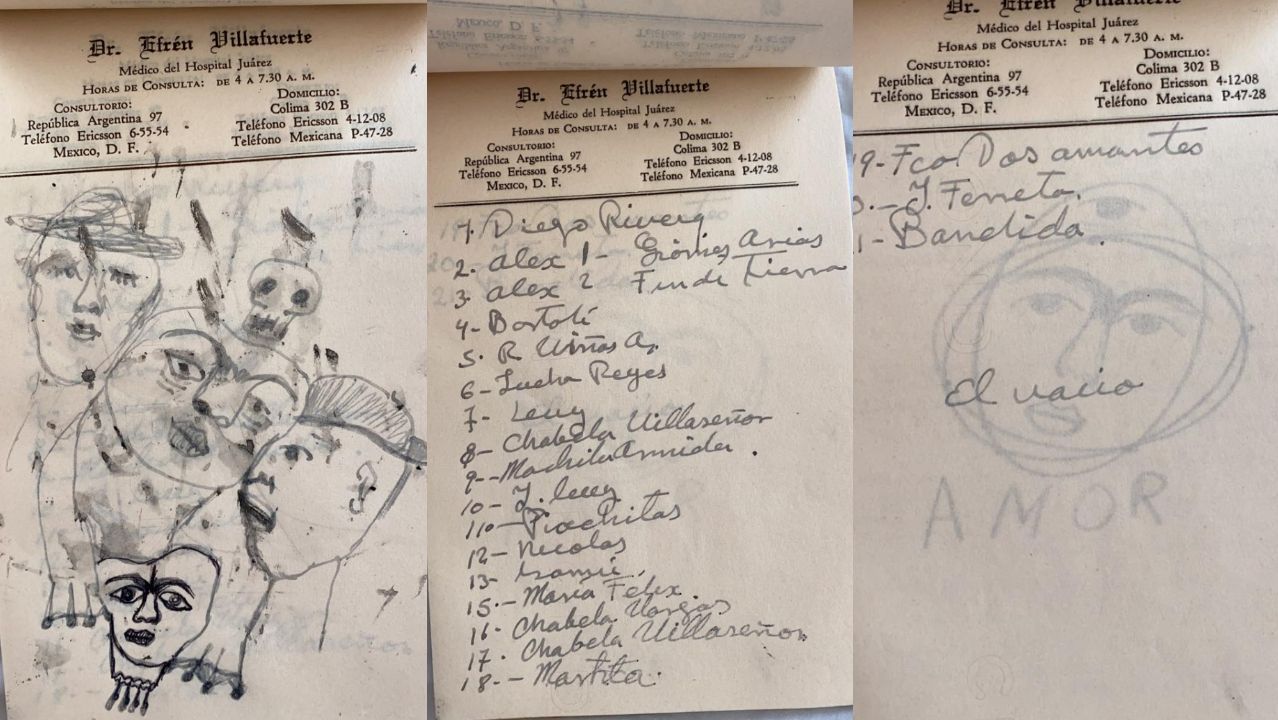 Dr. Efrén Villafuerte
Médico del Hospital Juárez
HORAS DE CONSULTA: DE 4 A 7.30 A. M.
CONSULTORIO:
República Argentina 97
Teléfono Ericsson 6-55-54
MEXICO, D. F.
DOMICILIO:
Colima 302 B
Teléfono Ericsson 4-12-08
Teléfono Mexicana P-47-28
Dr. Efrén Villafuerte
Médico del Hospital Juárez
HORAS DE CONSULTA: DE 4 A 7.30 A. M.
CONSULTORIO:
República Argentina 97
Teléfono Ericsson 6-55-54
MEXICO, D. F.
DOMICILIO:
Colima 302 B
Teléfono Ericsson 4-12-08
Teléfono Mexicana P-47-28
1. Diego Rivera
2. Alex 1 - Gómez Arias
3. Alex 2 Fin de Tierra
4- Bartolí
5. R. Viñas A.
6- Lucha Reyes
7-
8- Chabela Villaseñor
9- Machila Armida.
10- J.
11- Piochitas
12- Nicolas
13-
15.- María Félix.
16- Chabela Vargas
17. Chabela Villaseñor
18.- Martita.
Dr. Efrén Villafuerte
Médico del Hospital Juárez
HORAS DE CONSULTA: DE 4 A 7.30 A. M.
CONSULTORIO:
República Argentina 97
Teléfono Ericsson 6-55-54
MEXICO, D. F.
DOMICILIO:
Colima 302 B
Teléfono Ericsson 4-12-08
Teléfono Mexicana P-47-28
9- Fco Dos amantes
0.- J. Ferreto.
1- Bandida.
El vacio
AMOR